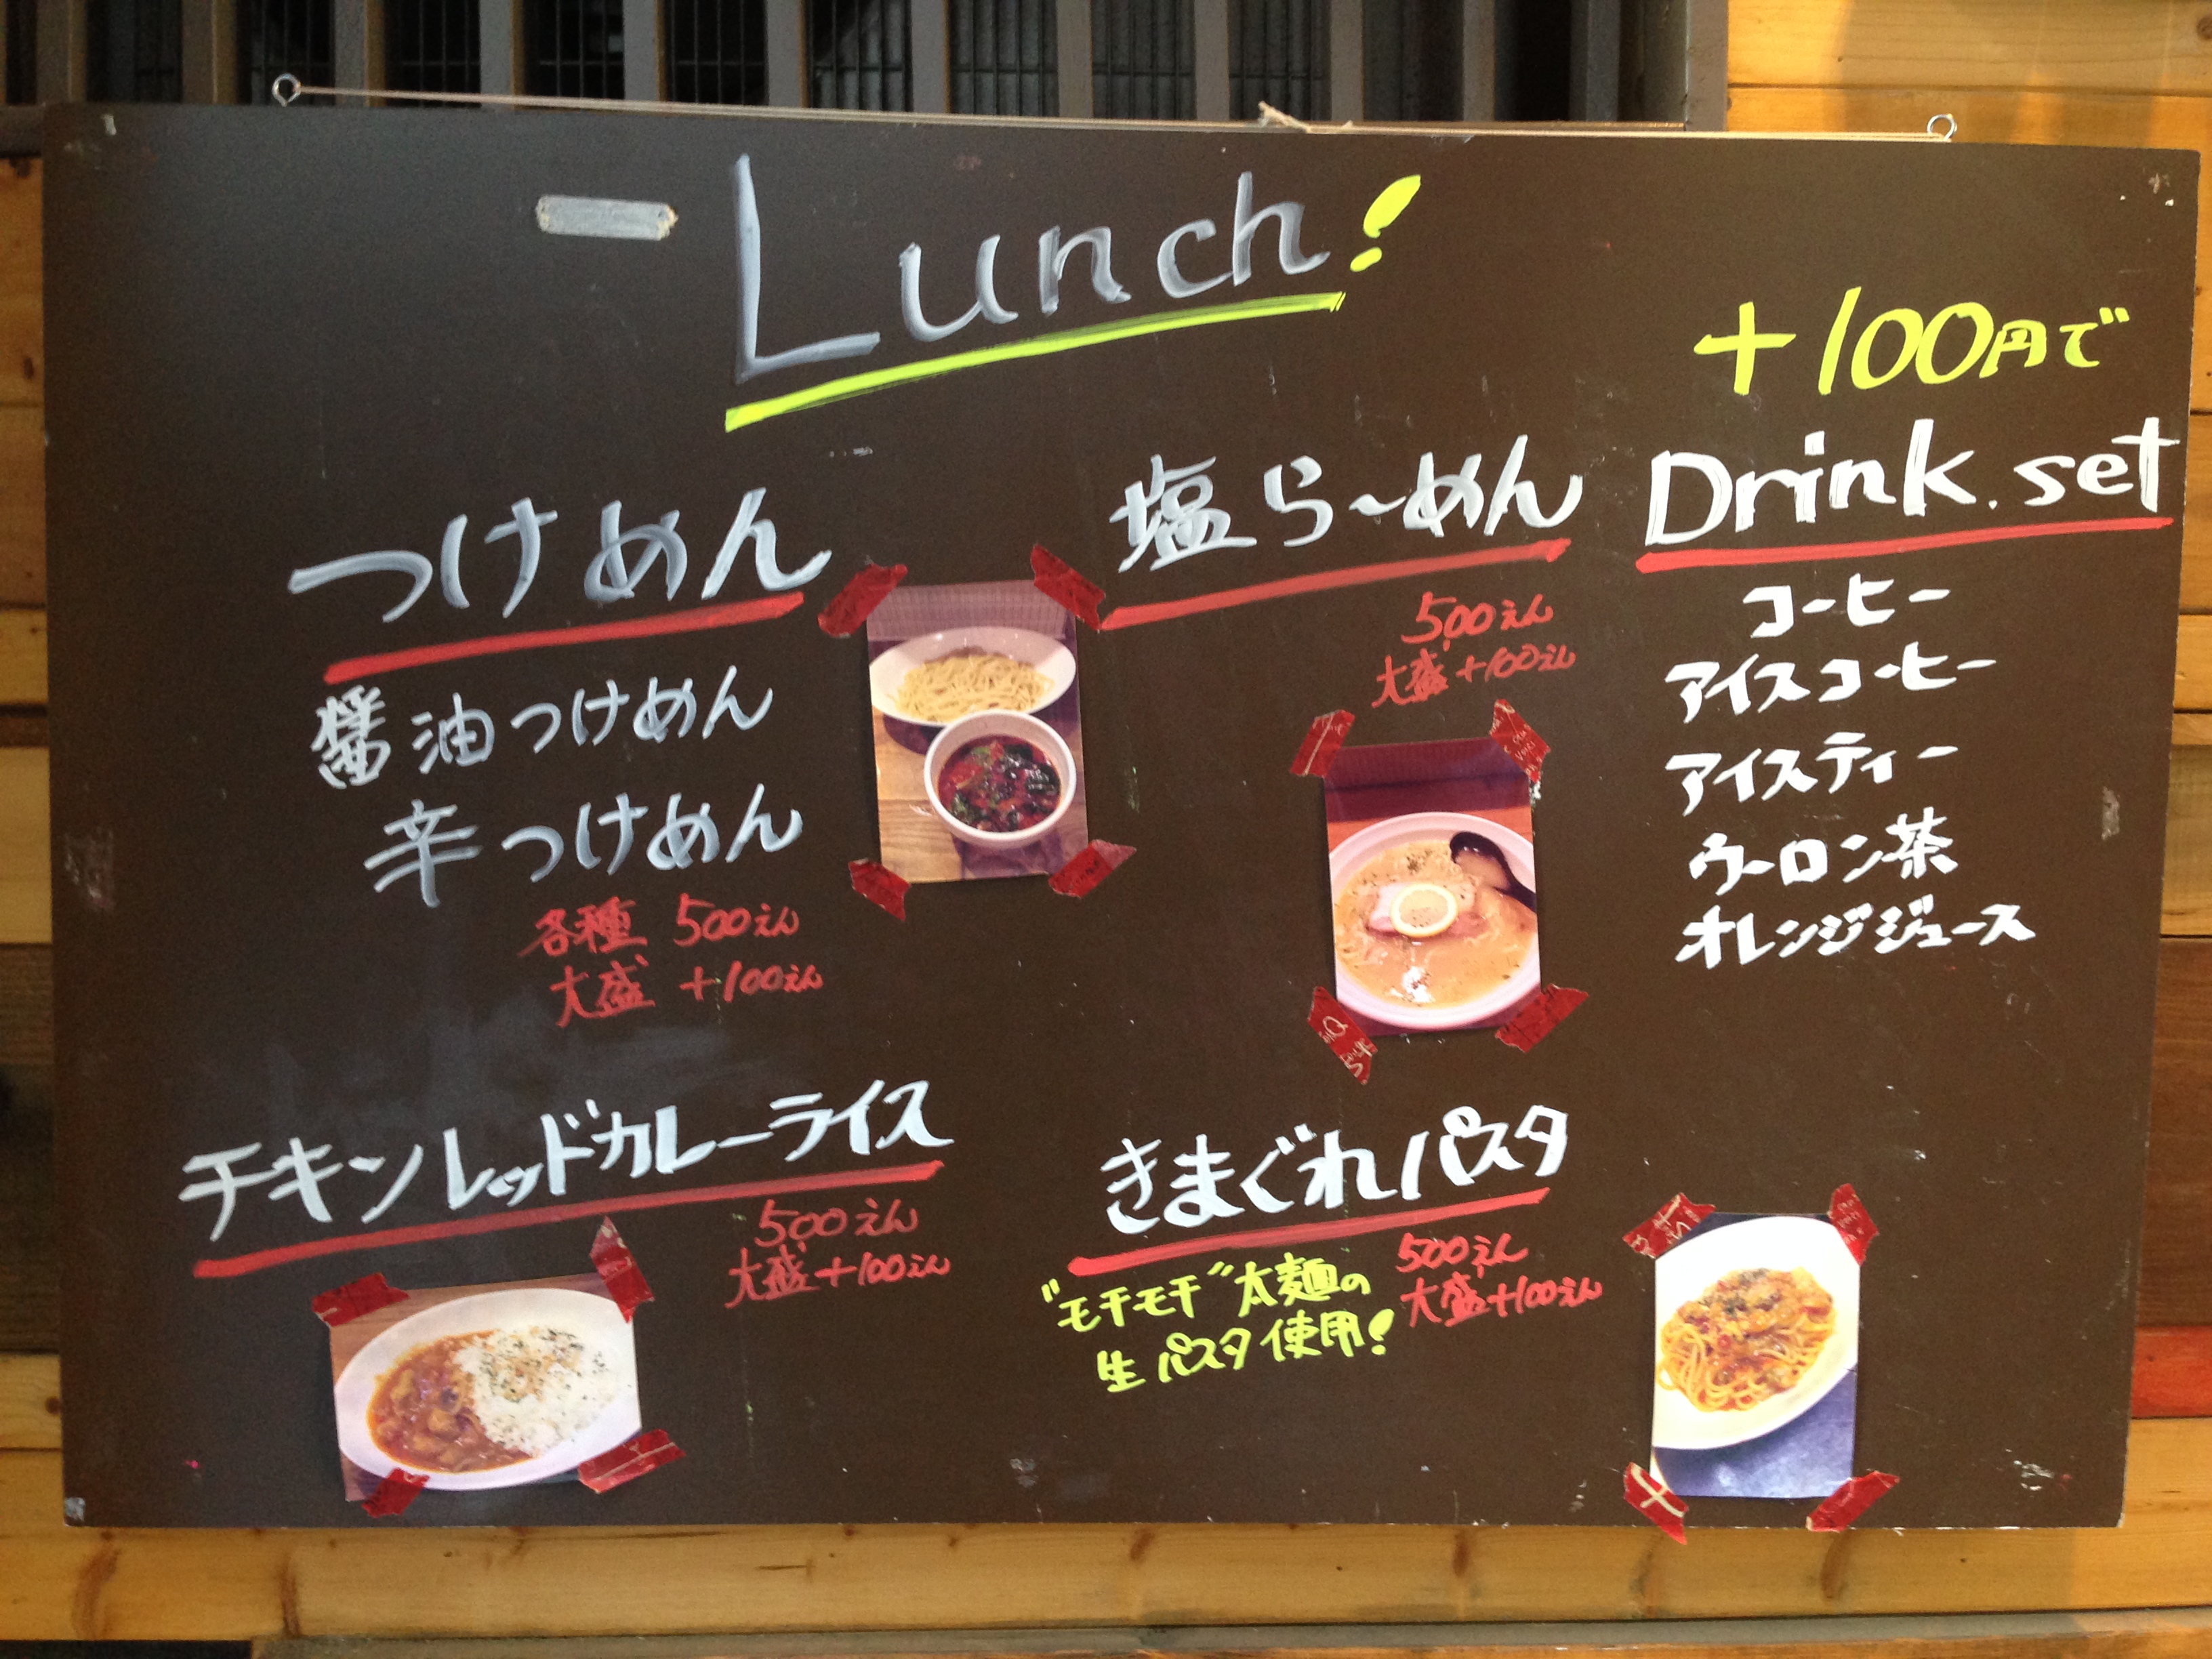 Lunch!
つけめん
醤油つけめん
辛つけめん
各種 500えん
大盛 +100えん
塩ら～めん
500えん
大盛+100えん
+100円で
Drink.set
コーヒー
アイスコーヒー
アイスティー
ウーロン茶
オレンジジュース
チキンレッドカレーライス
500えん
大盛+100えん
きまぐれパスタ
"モチモチ"太麺の
生パスタ使用!
500えん
大盛+100えん